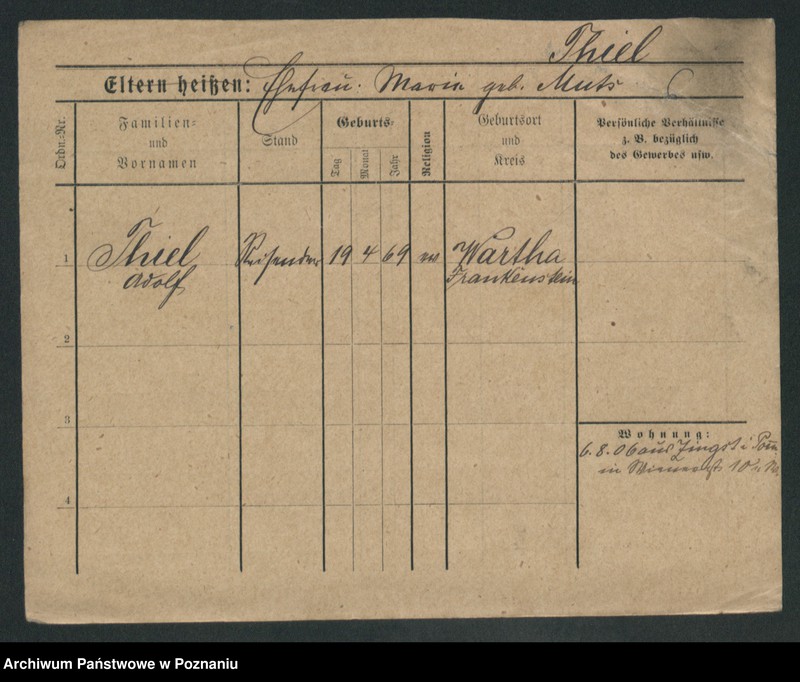 Thiel
Eltern heißen: Ehefrau. Maria geb. Muts
Ordn.-Nr.
Familien-
und
Vornamen
Stand
Geburts-
Tag
Monat
Jahr
Religion
Geburtsort
und
Kreis
Persönliche Verhältnisse
z. B. bezüglich
des Gewerbes usw.
1
Thiel
Adolf
Reisender
19
4
69
ev
Wartha
Frankenstein
2
3
4
Wohnung:
6.8.06 aus Zingst i Pom
in 10
Archiwum Państwowe w Poznaniu